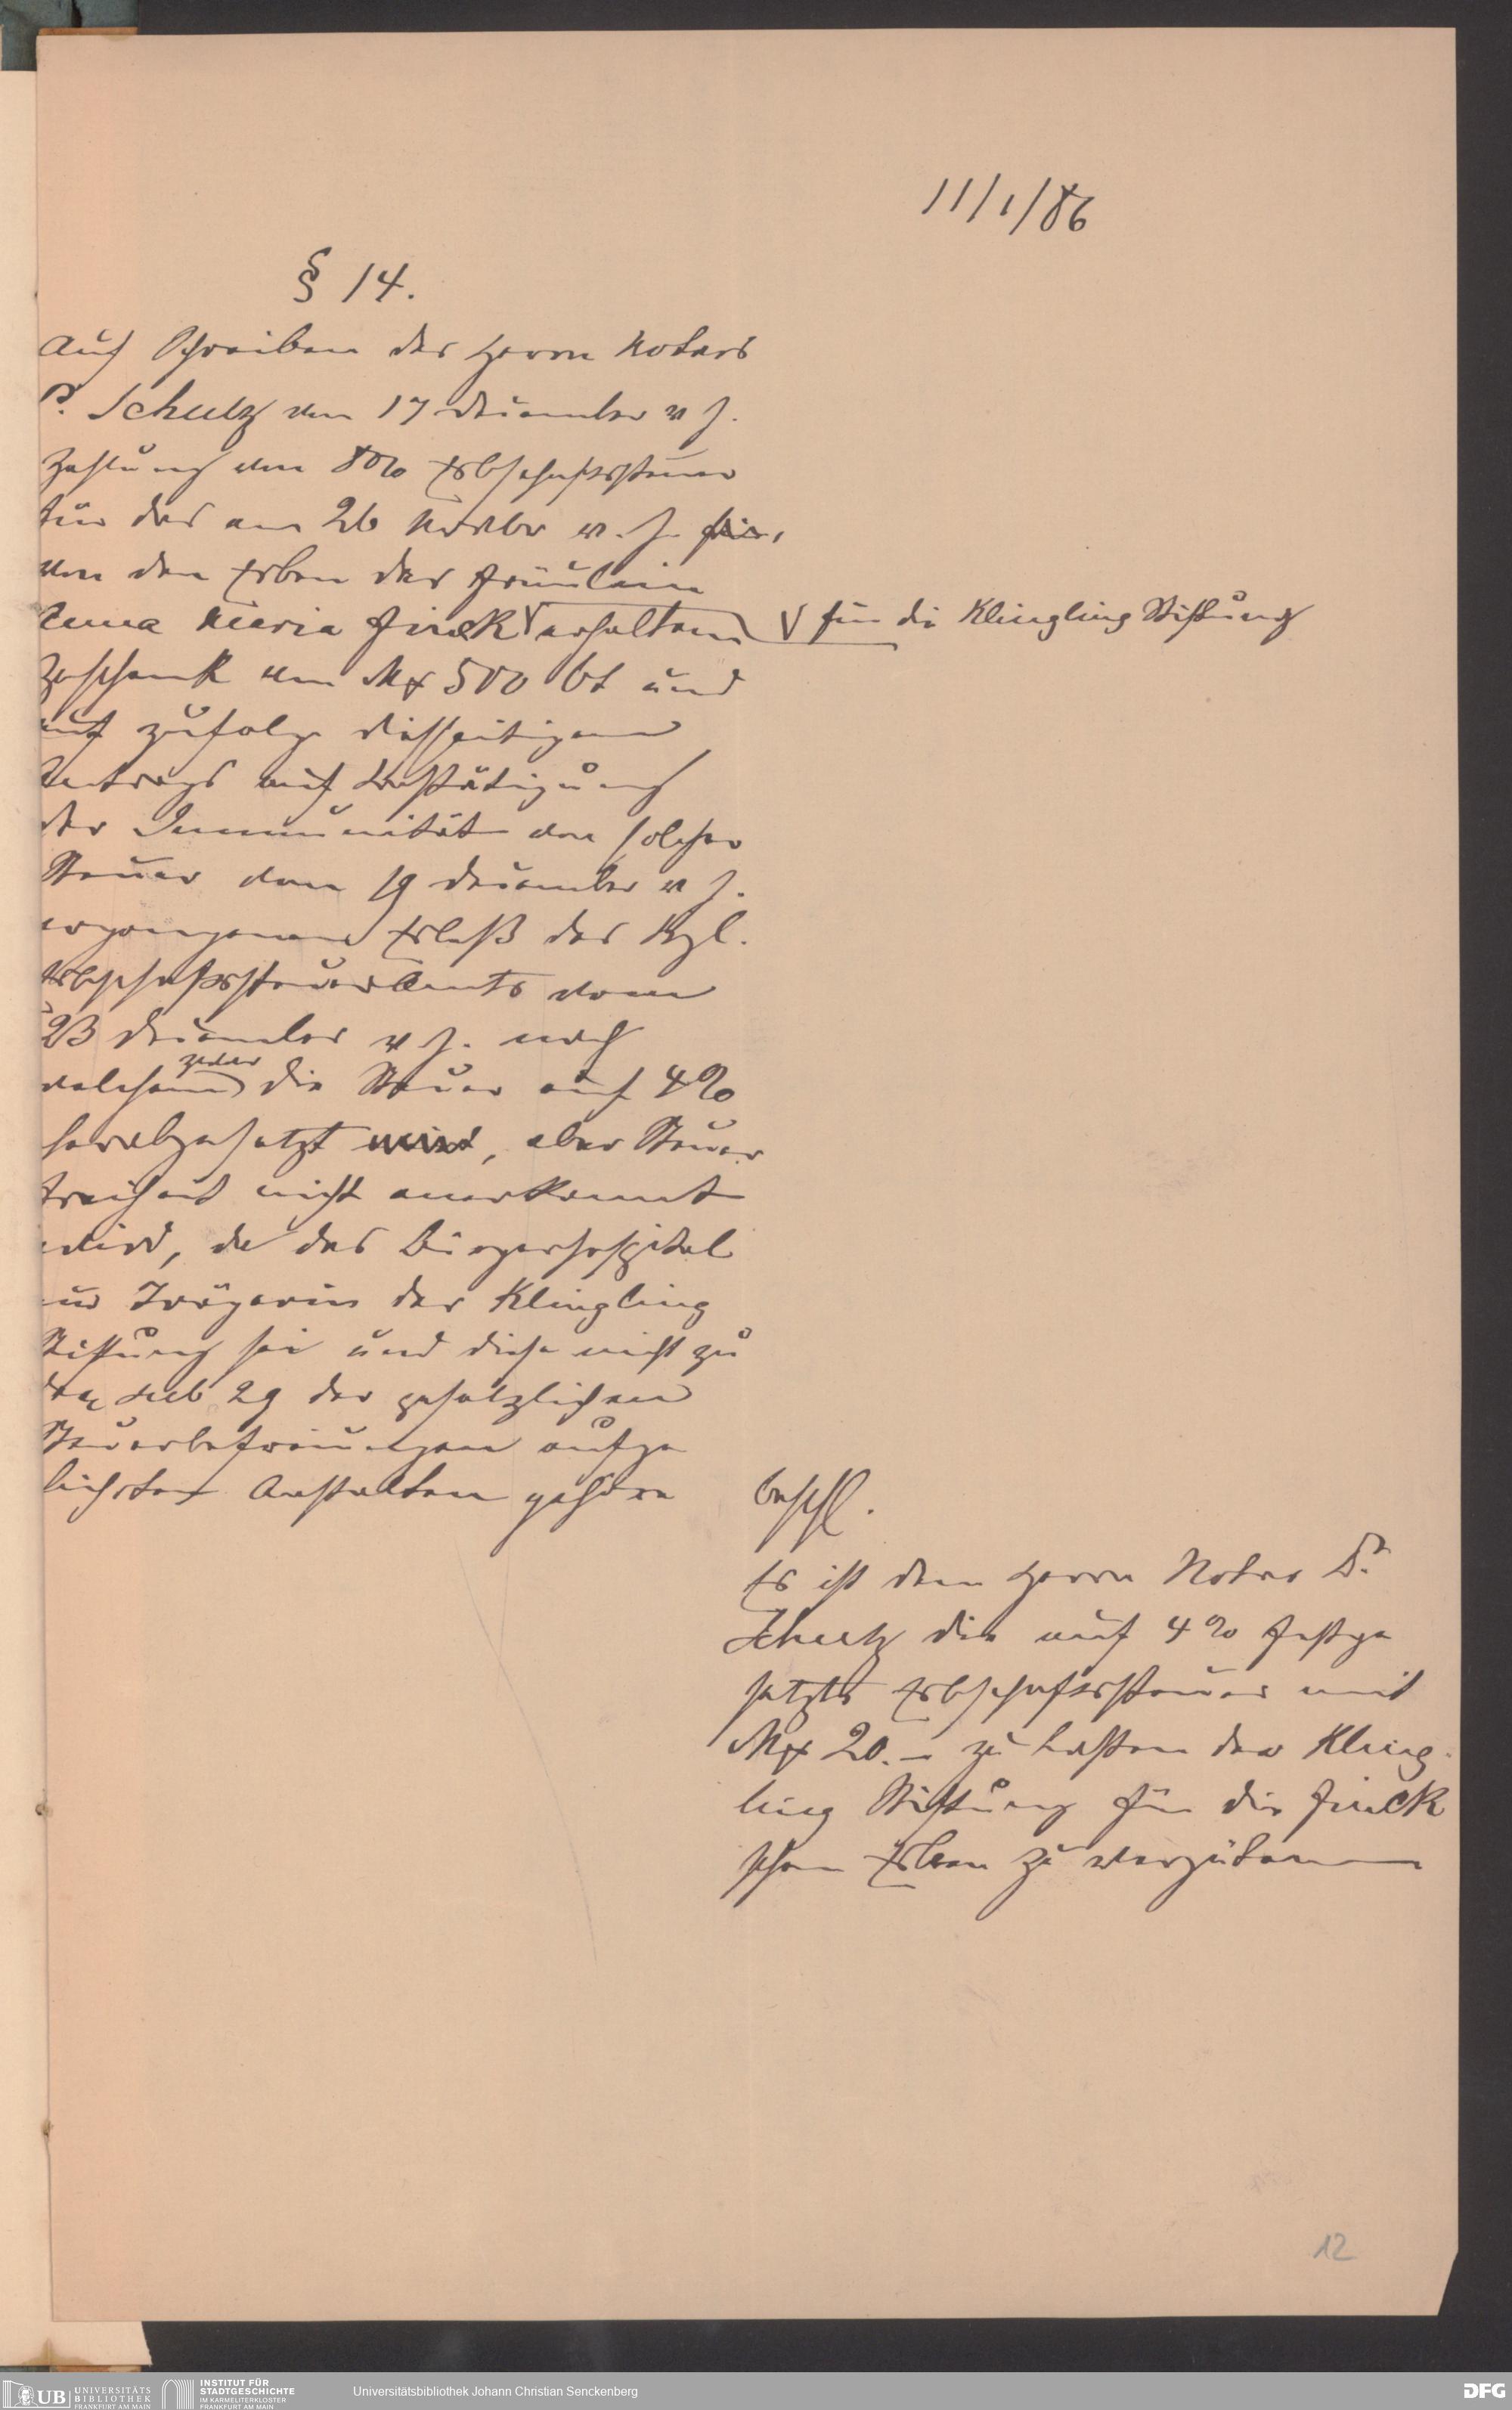 11/1/86
§ 14.
Auf Schreiben des Herrn Notars
Dr. Schulz vom 17 December v J.
Zahlung von 8% Erbschaftssteuer
für das am 26 Novbr v. J.
von den Erben der Fräulein
Anna Maria Finck erhaltene
für die Klingling Stiftung
Geschenk von Mx 500 btr und
auf zufolge diesseitigen
Antrags auf Bestätigung
der Immunität von solcher
Steuer vom 19 December v J.
ergangenen Erlaß des Kgl.
Erbschaftssteueramts vom
23 December v J. nach
welchem zwar die Steuer auf 4%
herabgesetzt wird, aber Steuer
freiheit nicht anerkannt
wird, da das Bürgerhospital
nur Trägerin der Klingling
Stiftung sei und diese nicht zu
den sub 2g der gesetzlichen
Steuerbefreiungen aufge
führten Anstalten gehöre
beschl.
Es ist dem Herrn Notar Dr.
Schulz die auf 4% festge
setzte Erbschaftssteuer mit
Mx 20.– zu Lasten der Kling-
ling Stiftung für die Finck
schen Erben zu vergüten
12
UB UNIVERSITÄTS
BIBLIOTHEK
FRANKFURT AM MAIN
INSTITUT FÜR
STADTGESCHICHTE
IM KARMELITERKLOSTER
FRANKFURT AM MAIN
Universitätsbibliothek Johann Christian Senckenberg
DFG